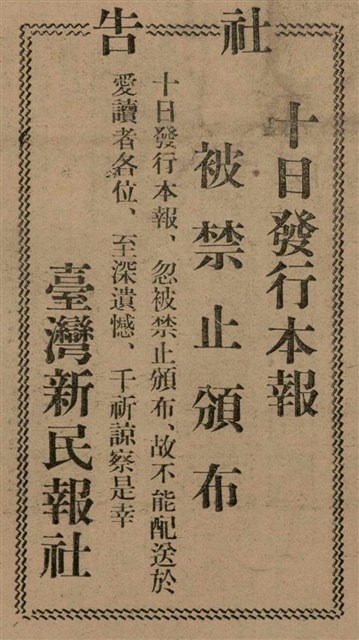 社告
十日發行本報
被禁止頒布
十日發行本報、忽被禁止頒布、故不能配送於
愛讀者各位、至深遺憾、千祈諒察是幸
臺灣新民報社